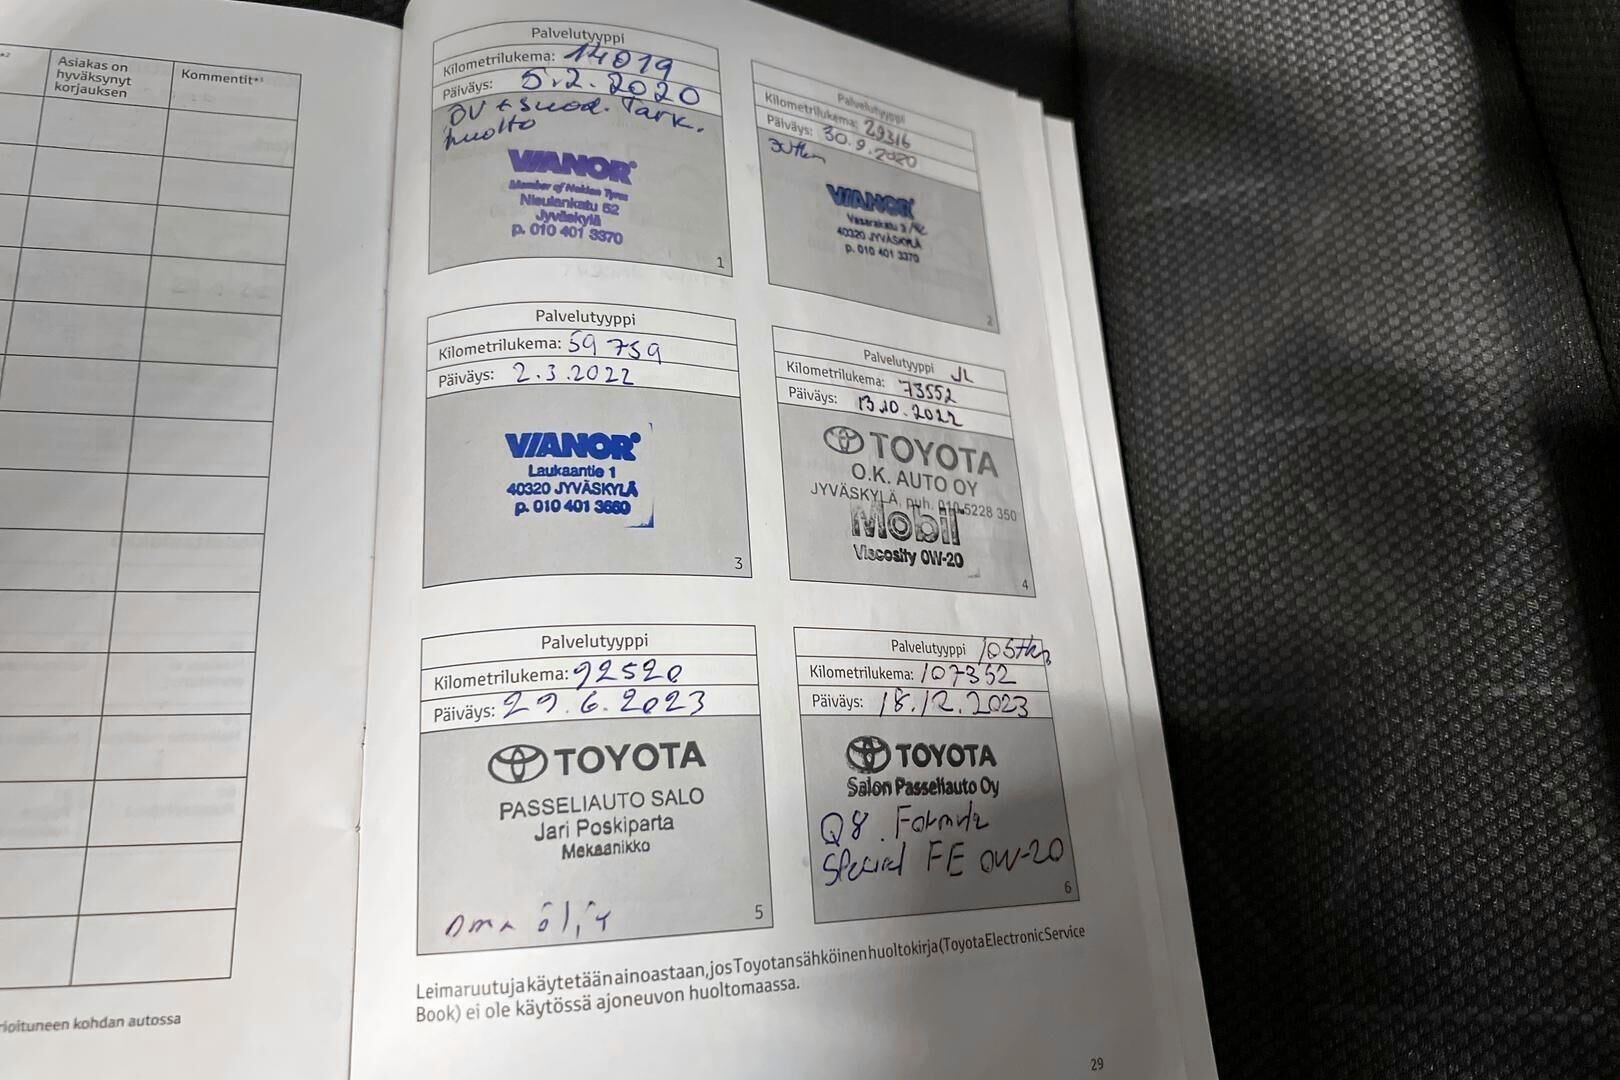 Asiakas on
hyväksynyt
korjauksen
Kommentit*³
rioituneen kohdan autossa
Palvelutyyppi
Kilometrilukema: 14019
Päiväys: 5.2.2020
ÖV + suod. Tark.
huolto
VIANOR
Member of Nokian Tyres
Nisulankatu 52
Jyväskylä
p. 010 401 3370
1
Palvelutyyppi
Kilometrilukema: 29316
Päiväys: 30.9.2020
30tkm
VIANOR
40320 JYVÄSKYLÄ
p. 010 401 3370
2
Palvelutyyppi
Kilometrilukema: 59 759
Päiväys: 2.3.2022
VIANOR
Laukaantie 1
40320 JYVÄSKYLÄ
p. 010 401 3660
3
Palvelutyyppi JL
Kilometrilukema: 73552
Päiväys: 13.10.2022
TOYOTA
O.K. AUTO OY
JYVÄSKYLÄ, puh. 010-5228 350
Mobil
Viscosity 0W-20
4
Palvelutyyppi
Kilometrilukema: 92520
Päiväys: 29.6.2023
TOYOTA
PASSELIAUTO SALO
Jari Poskiparta
Mekaanikko
oma öljy
5
Palvelutyyppi 105tkm
Kilometrilukema: 107352
Päiväys: 18.12.2023
TOYOTA
Salon Passeliauto Oy
Q8 Formula
Special FE 0W-20
6
Leimaruutuja käytetään ainoastaan, jos Toyotan sähköinen huoltokirja (Toyota Electronic Service
Book) ei ole käytössä ajoneuvon huoltomaassa.
29